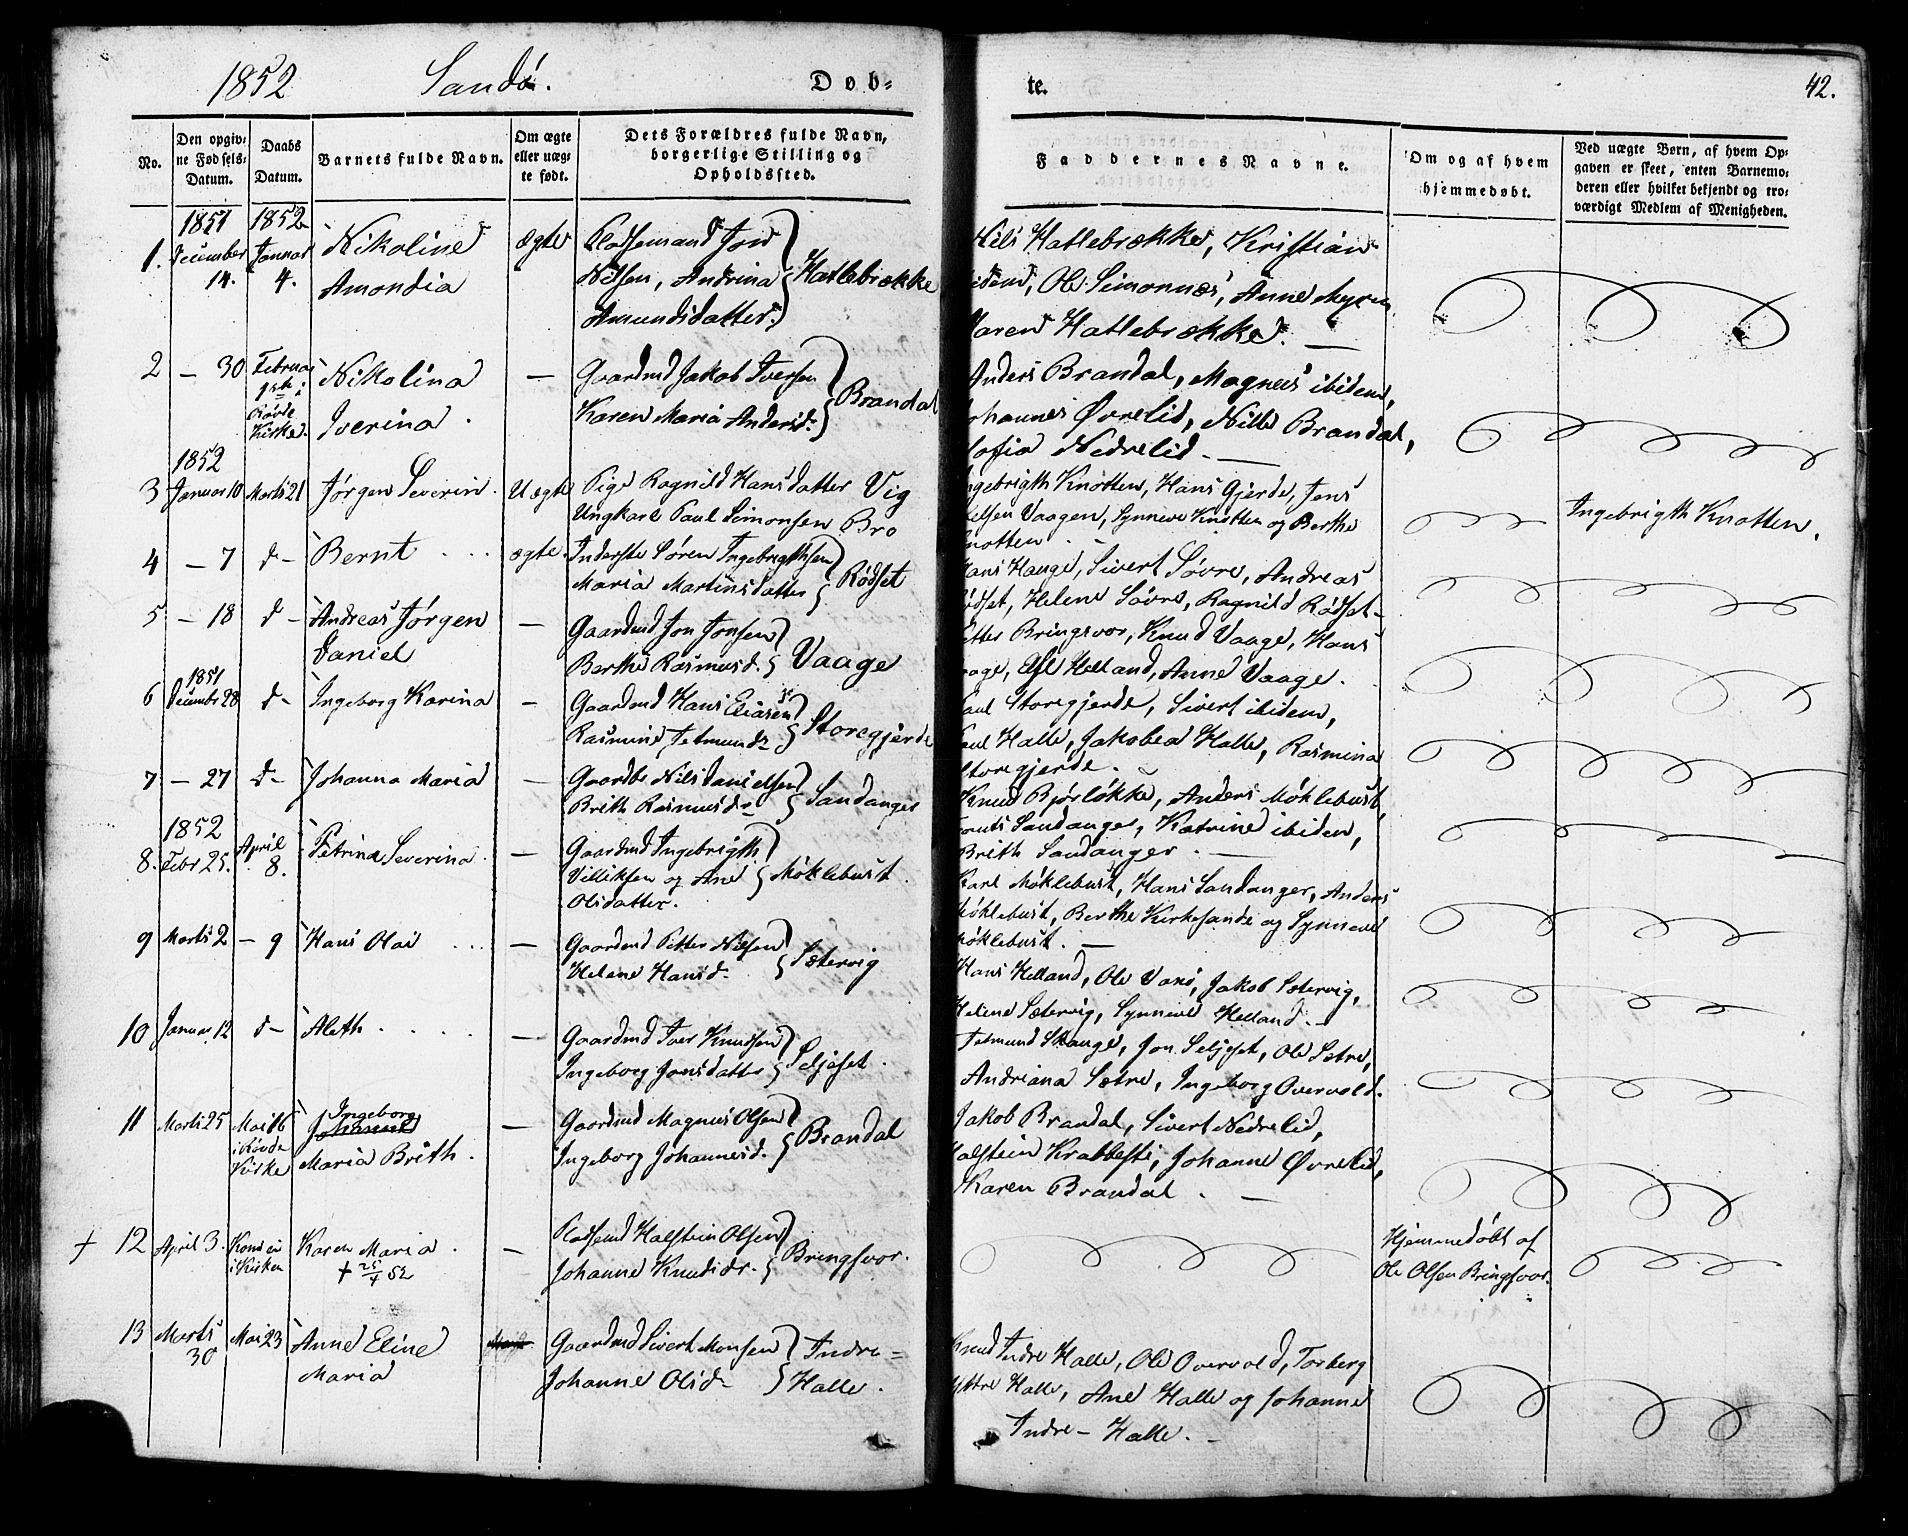 1852 Sandø. Døb-
No.
Den opgiv-
ne Fødsels-
Datum.
Daabs
Datum.
Barnets fulde Navn.
Om ægte
eller uæg-
te født.
Dets Forældres fulde Navn,
borgerlige Stilling og
Opholdssted.
1851 1852
1. December Januar Nikoline ægte Pladsemand Jon
14. 4. Amondia Nilsen, Andrina Hatlebrække
Amundsdatter.
2 — 30 Februar Nikolina — Gaardmd Jakob Iversen
Rövde Kirke. Iverina. Karen Maria Andersd. Brandal
1852
3 Januar 10 Marts 21 Jørgen Severin. Uægte Pige Ragnild Hansdatter Vig
Ungkarl Paul Simonsen Bro
4 — 7 d— Bernt ægte. Inderste Søren Ingebrigthsen
Maria Martinsdatter Rødset
5 — 18 d— Andreas Jørgen — Gaardmd Jon Jonsen
Daniel Berthe Rasmusd. Vaage
1851
6 Decembr 28 d— Ingeborg Karina — Gaardmd Hans Eliasen
Rasmine Tetmundsdr Storegjerde
7 — 27 d— Johanna Maria — Gaardbr Nils Danielsen
Brith Rasmusdr Sandanger
1852
8. Febr 25. April 8. Petrina Severina. — Gaardmd Ingebrigth
Villiksen og Ane Möklebust.
Olsdatter.
9 Marts 2 — 9 Hans Olai — Gaardmd Petter Nilsen
Helene Hansd. Sætervig
10 Januar 12 d— Aleth — Gaardmd Iver Knudsen
Ingeborg Jonsdatter Seljeset.
11 Marts 25 Mai 16 Ingeborg — Gaardmd Magnus Olsen
i Rövde Kirke Maria Brith. Ingeborg Johannesd. Brandal
+ 12 April 3. Kom ei i Kirken Karen Maria. — Pladsemd Halstein Olsen
+ 25/4 52 Johanne Knudsdr. Bringsvor.
13 Marts 30 Mai 23 Anne Eline Gaardmd Sivert Monsen Indre-
Maria Johanne Olsd. Halle.
te. 42.
Faddernes Navne.
Om og af hvem
hjemmedøbt.
Ved uægte Børn, af hvem Op-
gaven er skeet, enten Barnemo-
deren eller hvilket bekjendt og tro-
værdigt Medlem af Menigheden.
Nils Hatlebrække, Kristian
ibidem, Ole Simonnes, Anne Myren,
Maren Hatlebrække.
Anders Brandal, Magnus ibidem,
Johannes Øvrelid, Nille Brandal,
Sofia Nedrelid.
Ingebrigth Knotten, Hans Gjerde, Jens
Vaagen, Synneve Knotten og Berthe Ingebrigth Knotten.
Knotten.
Hans Hauge, Sivert Søvre, Andreas
Rødset, Helene Søvre, Ragnild Rødset
Petter Bringsvor, Knud Vaage, Hans
Vaage, Helland, Anne Vaage.
Paul Storegjerde, Sivert ibidem,
Paul Halle, Jakobea Halle, Rasmina
Storegjerde.
Knud Bjørløkke, Anders Möklebust,
Sandanger, Katrine ibidem,
Brith Sandanger.
Karl Möklebust, Hans Sandanger, Anders
Möklebust, Berthe Kirkesande og Synneve
Möklebust.
Hans Helland, Ole Voksö, Jakob Sætervig,
Helene Sætervig, Synneve Helland.
Tetmund Skauge, Jon Seljeset, Ole Sætre,
Andriana Sætre, Ingeborg Overvold.
Jakob Brandal, Sivert Nedrelid,
Halstein Krabbesti, Johanne Øvrelid,
Karen Brandal.
Hjemmedøbt af
Ole Olsen Bringsvor.
Knud Indre Halle, Ole Overvold, Torberg
Yttre Halle, Ane Halle og Johanne
Indre-Halle.